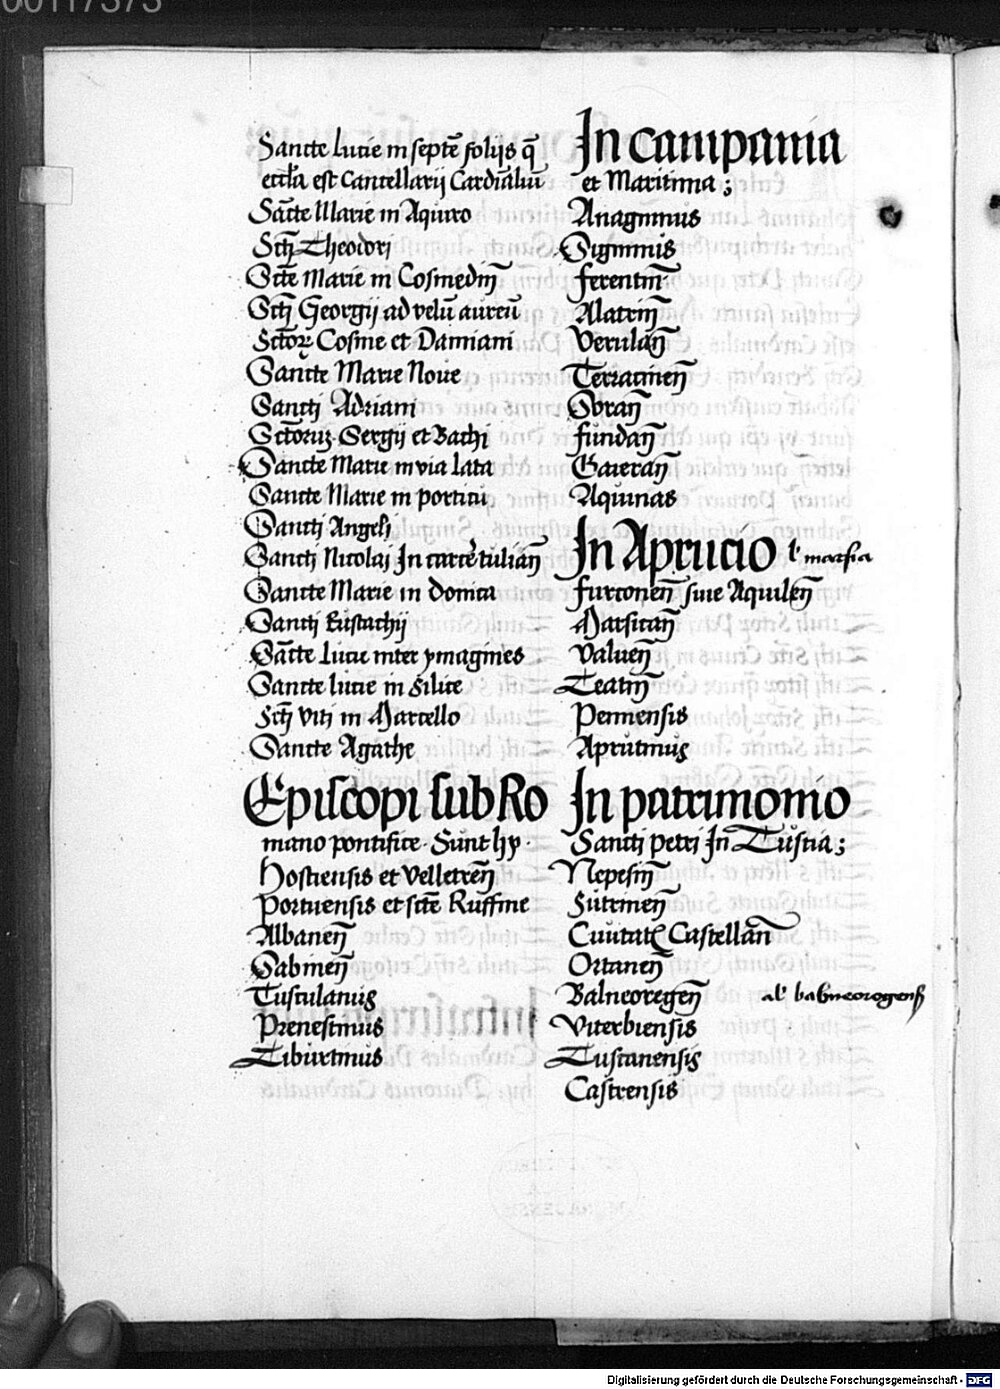 00117373
Sancte Lucie in septē solijs q̄
eccl̄a est Cancellarij Cardīaliū
Sācte Marie in Aquiro
Sct̄j Theodori
Scte Marie in Cosmedin̄
Sct̄j Georgij ad velū aureū
Sctōꝝ Cosme et Damiani
Sancte Marie Noue
Sanctj Adriani
Sctōrum Sergij et Bachi
Sancte Marie in via lata
Sancte Marie in porticu
Sanctj Angeli
Sanctj Nicolaj In carcē tulian̄
Sancte Marie in domica
Sanctj Eustachij
Sācte Lucie inter ymagines
Sancte lucie in silice
Sct̄j Viti in Marcello
Sancte Agathe
Episcopi sub Ro
mano pontifice. Sunt hy.
Hostiensis et Velletren̄
Portuensis et scte Ruffine
Albanen̄
Sabinen̄
Tusculanus
Prenestinus
Tiburtinus
In campania
et Maritima ;
Anagninus
Signinus
ferentin̄
Alatrin̄
Verulan̄
Terracinen̄
Soran̄
fundan̄
Gaietan̄
Aquinas
In Aprucio l' marsia
furconen̄ siue Aquilen̄
Marsican̄
Valuen̄
Teatin̄
Pennensis
Aprutinus
In patrimonio
Sanctj petri In Tuscia ;
Nepesin̄
Sutrinen̄
Ciuitatꝭ Castellan̄
Ortanen̄
Balneoregen̄ al' balneoregensꝭ
Viterbiensis
Tuscanensis
Castrensis
Digitalisierung gefördert durch die Deutsche Forschungsgemeinschaft - DFG